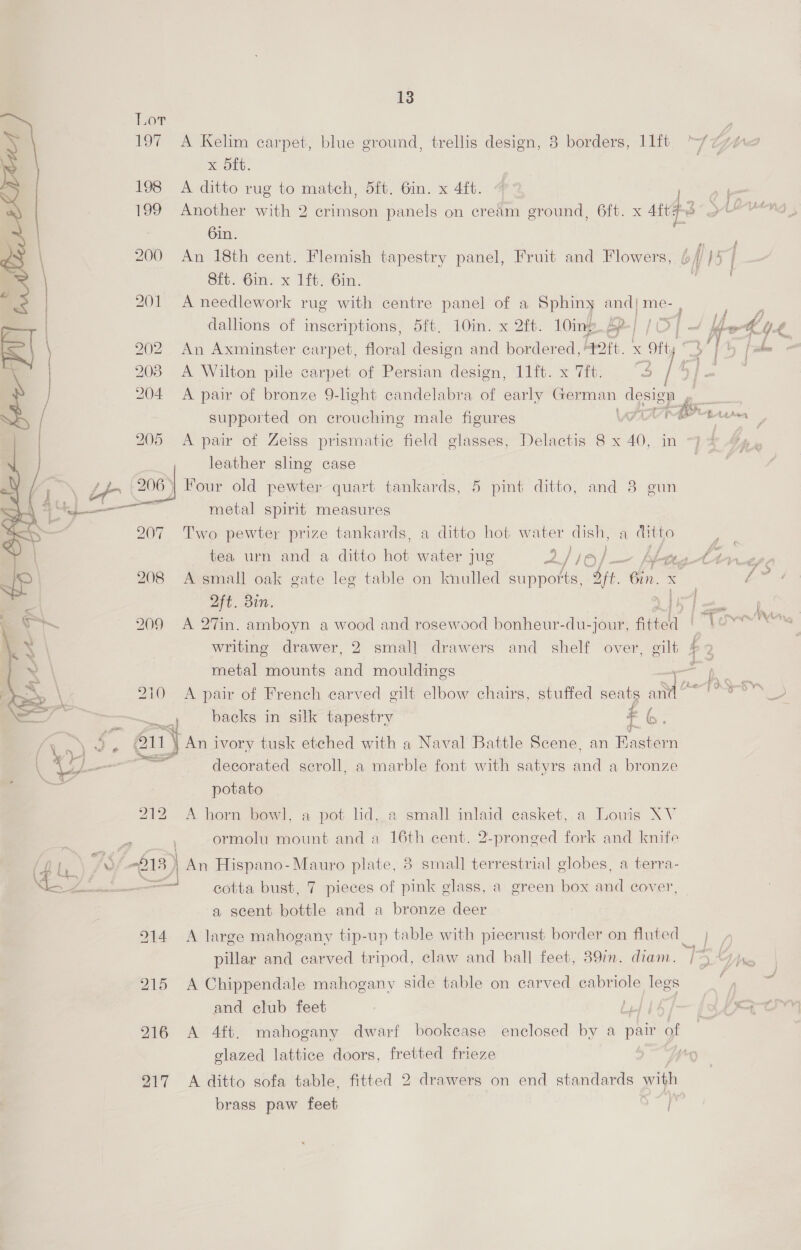 13
Lot
197 A Kelim carpet, blue ground, trellis design, 3 borders, 11ft
x 5ft.
198 A ditto rug to match, 5ft. 6in. x 4ft.
199 Another with 2 crimson panels on cream ground, 6ft. x 4ft
6in.
200 An 18th cent. Flemish tapestry panel, Fruit and Flowers,
8ft. 6in. x 1ft. 6in.
201 A needlework rug with centre panel of a Sphinx and me-
dallions of inscriptions, 5ft. 10in. x 2ft. 10in.
202 An Axminster carpet, floral design and bordered, 12ft. x 9ft,
203 A Wilton pile carpet of Persian design, 11ft. x 7ft.
204 A pair of bronze 9-light candelabra of early German design
supported on crouching male figures
205 A pair of Zeiss prismatic field glasses, Delactis 8 x 40, in
leather sling case
206 Four old pewter quart tankards, 5 pint ditto, and 3 gun
metal spirit measures
207 Two pewter prize tankards, a ditto hot water dish, a ditto
tea urn and a ditto hot water jug 2/10/-
208 A small oak gate leg table on knulled supports, 2ft. 6in. x
2ft. 3in.
209 A 27in. amboyn a wood and rosewood bonheur-du-jour, fitted
writing drawer, 2 small drawers and shelf over, gilt
metal mounts and mouldings
210 A pair of French carved gilt elbow chairs, stuffed seats and
backs in silk tapestry £6.
211 An ivory tusk etched with a Naval Battle Scene, an Eastern
decorated scroll, a marble font with satyrs and a bronze
potato
212 A horn bowl, a pot lid, a small inlaid casket, a Louis XV
ormolu mount and a 16th cent. 2-pronged fork and knife
213 An Hispano-Mauro plate, 3 small terrestrial globes, a terra-
cotta bust, 7 pieces of pink glass, a green box and cover,
a scent bottle and a bronze deer
214 A large mahogany tip-up table with piecrust border on fluted
pillar and carved tripod, claw and ball feet, 39in. diam.
215 A Chippendale mahogany side table on carved cabriole legs
and club feet
216 A 4ft. mahogany dwarf bookcase enclosed by a pair of
glazed lattice doors, fretted frieze
217 A ditto sofa table, fitted 2 drawers on end standards with
brass paw feet